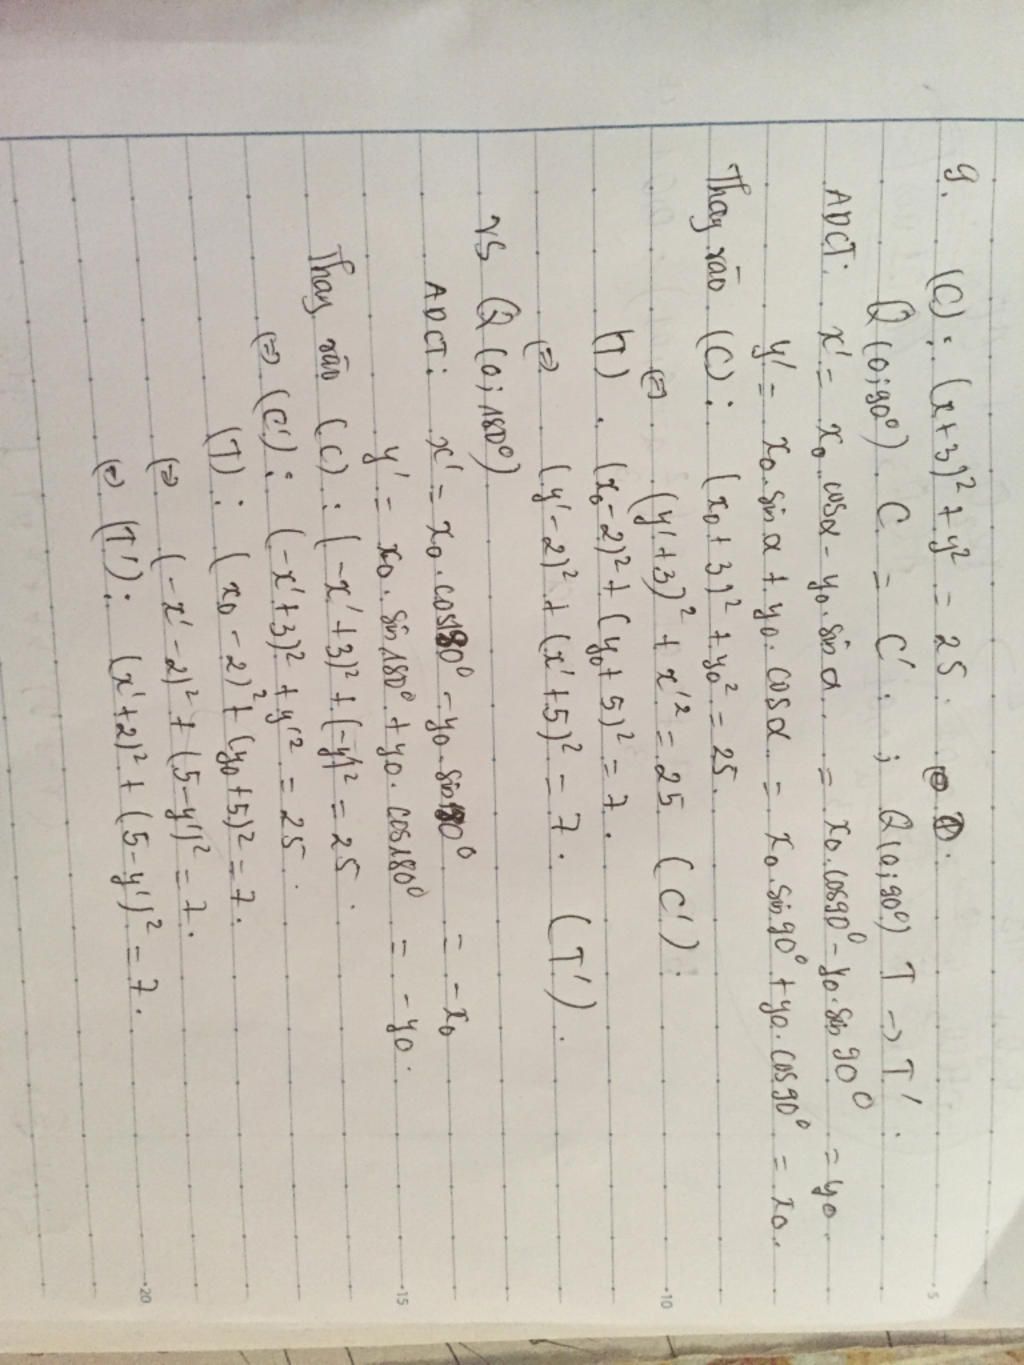 9. (C): (x+3)² + y² = 25.
Q(0;90°) C = C'. ; Q(0;90°) T → T'.
ADCT: x' = x₀.cosα - y₀.sinα = x₀.cos90° - y₀.sin90° = y₀
y' = x₀.sinα + y₀.cosα = x₀.sin90° + y₀.cos90° = x₀.
Thay vào (C): (x₀+3)² + y₀² = 25.
⇔ (y'+3)² + x'² = 25 (C'):
(T). (x₀-2)² + (y₀+5)² = 7.
⇔ (y'-2)² + (x'+5)² = 7. (T').
VS Q(0;180°)
ADCT: x' = x₀.cos180° - y₀.sin180° = -x₀
y' = x₀.sin180° + y₀.cos180° = -y₀.
Thay vào (C): (-x'+3)² + (-y')² = 25.
⇔ (C'): (-x'+3)² + y'² = 25.
(T): (x₀-2)² + (y₀+5)² = 7.
⇔ (-x'-2)² + (5-y')² = 7.
⇔ (T'): (x'+2)² + (5-y')² = 7.
5
10
15
20